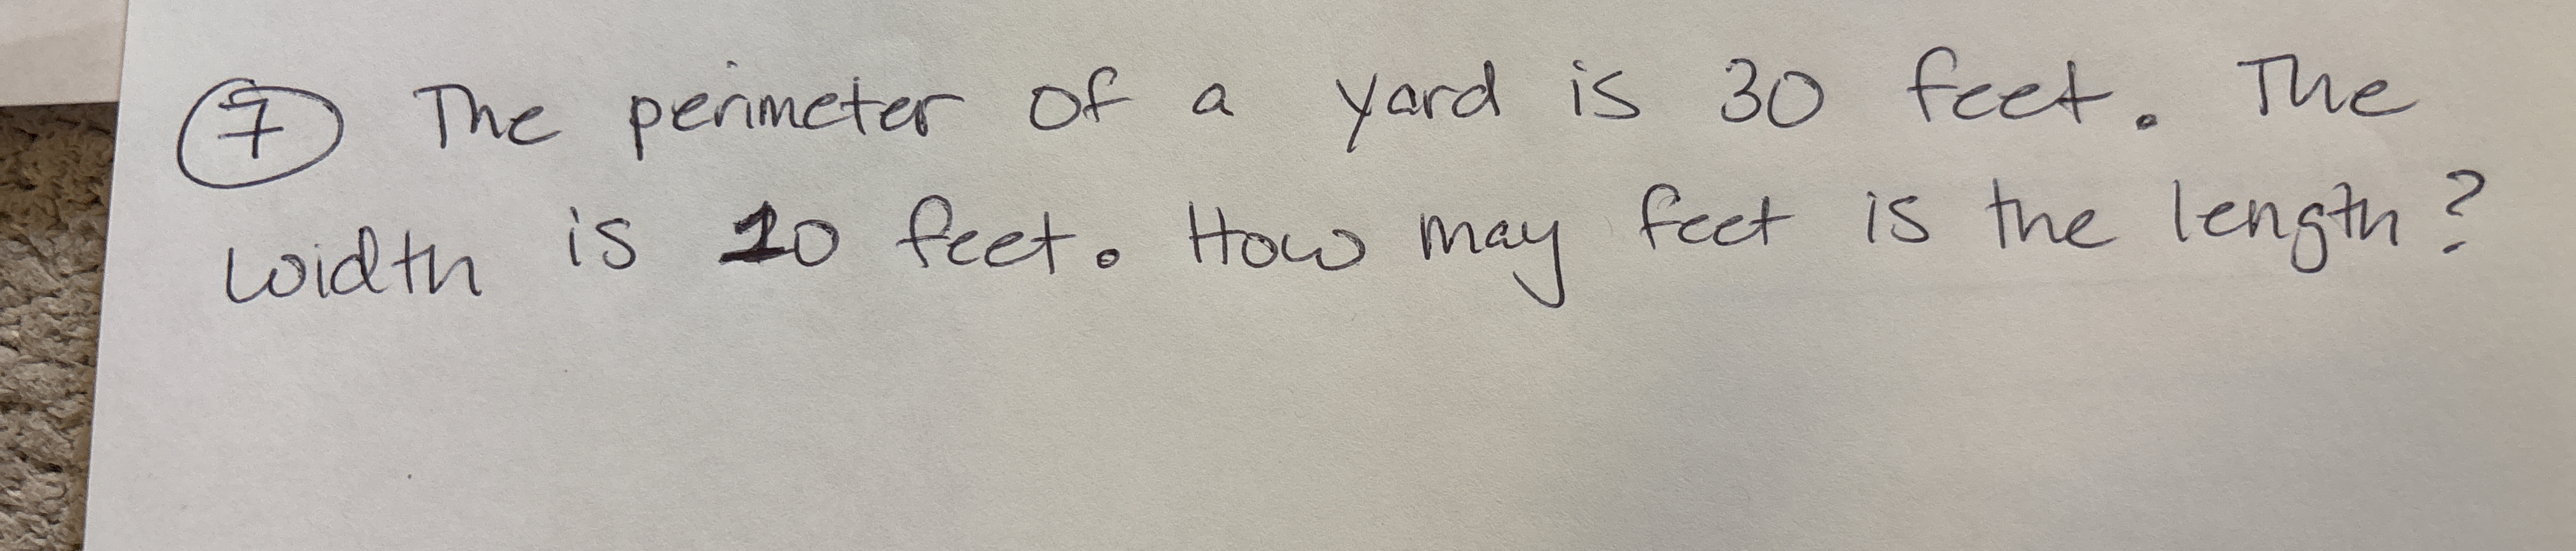 7 The perimeter of a yard is 30 feet. The
width is 10 feet. How may feet is the length?